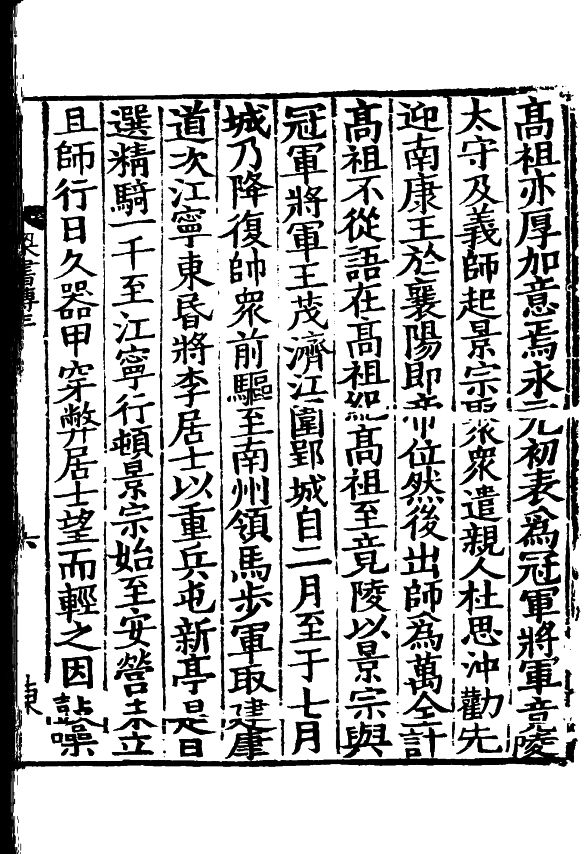 髙祖亦厚加意焉永元初表爲冠軍將軍竟陵
太守及義師起景宗聚衆遣親人杜思沖勸先
迎南康王於襄陽即帝位然後出師爲萬全計
髙祖不從語在髙祖紀髙祖至竟陵以景宗與
冠軍將軍王茂濟江圍郢城自二月至于七月
城乃降復帥衆前驅至南州領馬步軍取建康
道次江寧東昬將李居士以重兵屯新亭是日
選精騎一千至江寧行頓景宗始至安營未立
且師行日久器甲穿弊居士望而輕之因鼓噪
梁書傳三
六